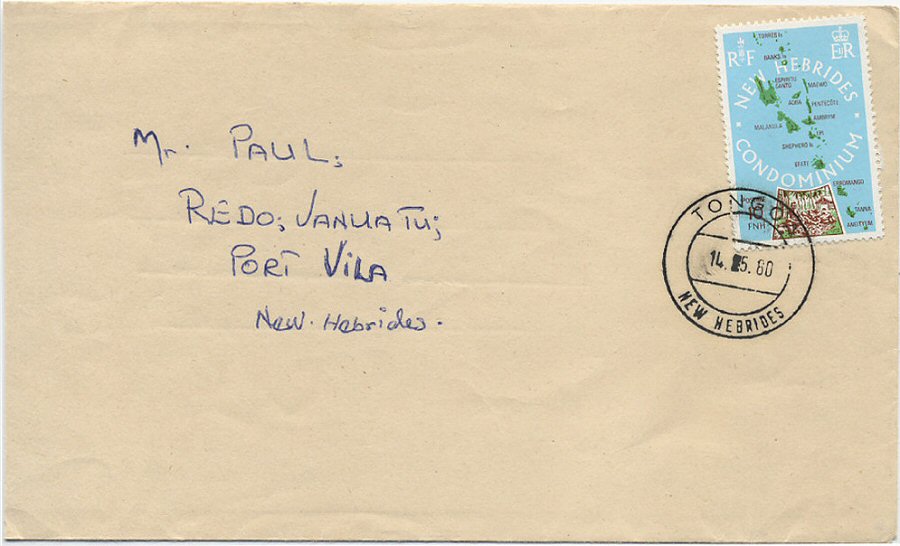 Mr. PAUL;
REDO; VANUATU;
PORT VILA
New. Hebrides.
RF
EIIR
NEW HEBRIDES
CONDOMINIUM
TORRES Is
BANKS Is
ESPIRITU
SANTO
MAEWO
AOBA
PENTECÔTE
MALAKULA
AMBRYM
EPI
SHEPHERD Is
EFATE
ERROMANGO
TANNA
ANEITYUM
10
FNH
14. 5.80
NEW HEBRIDES